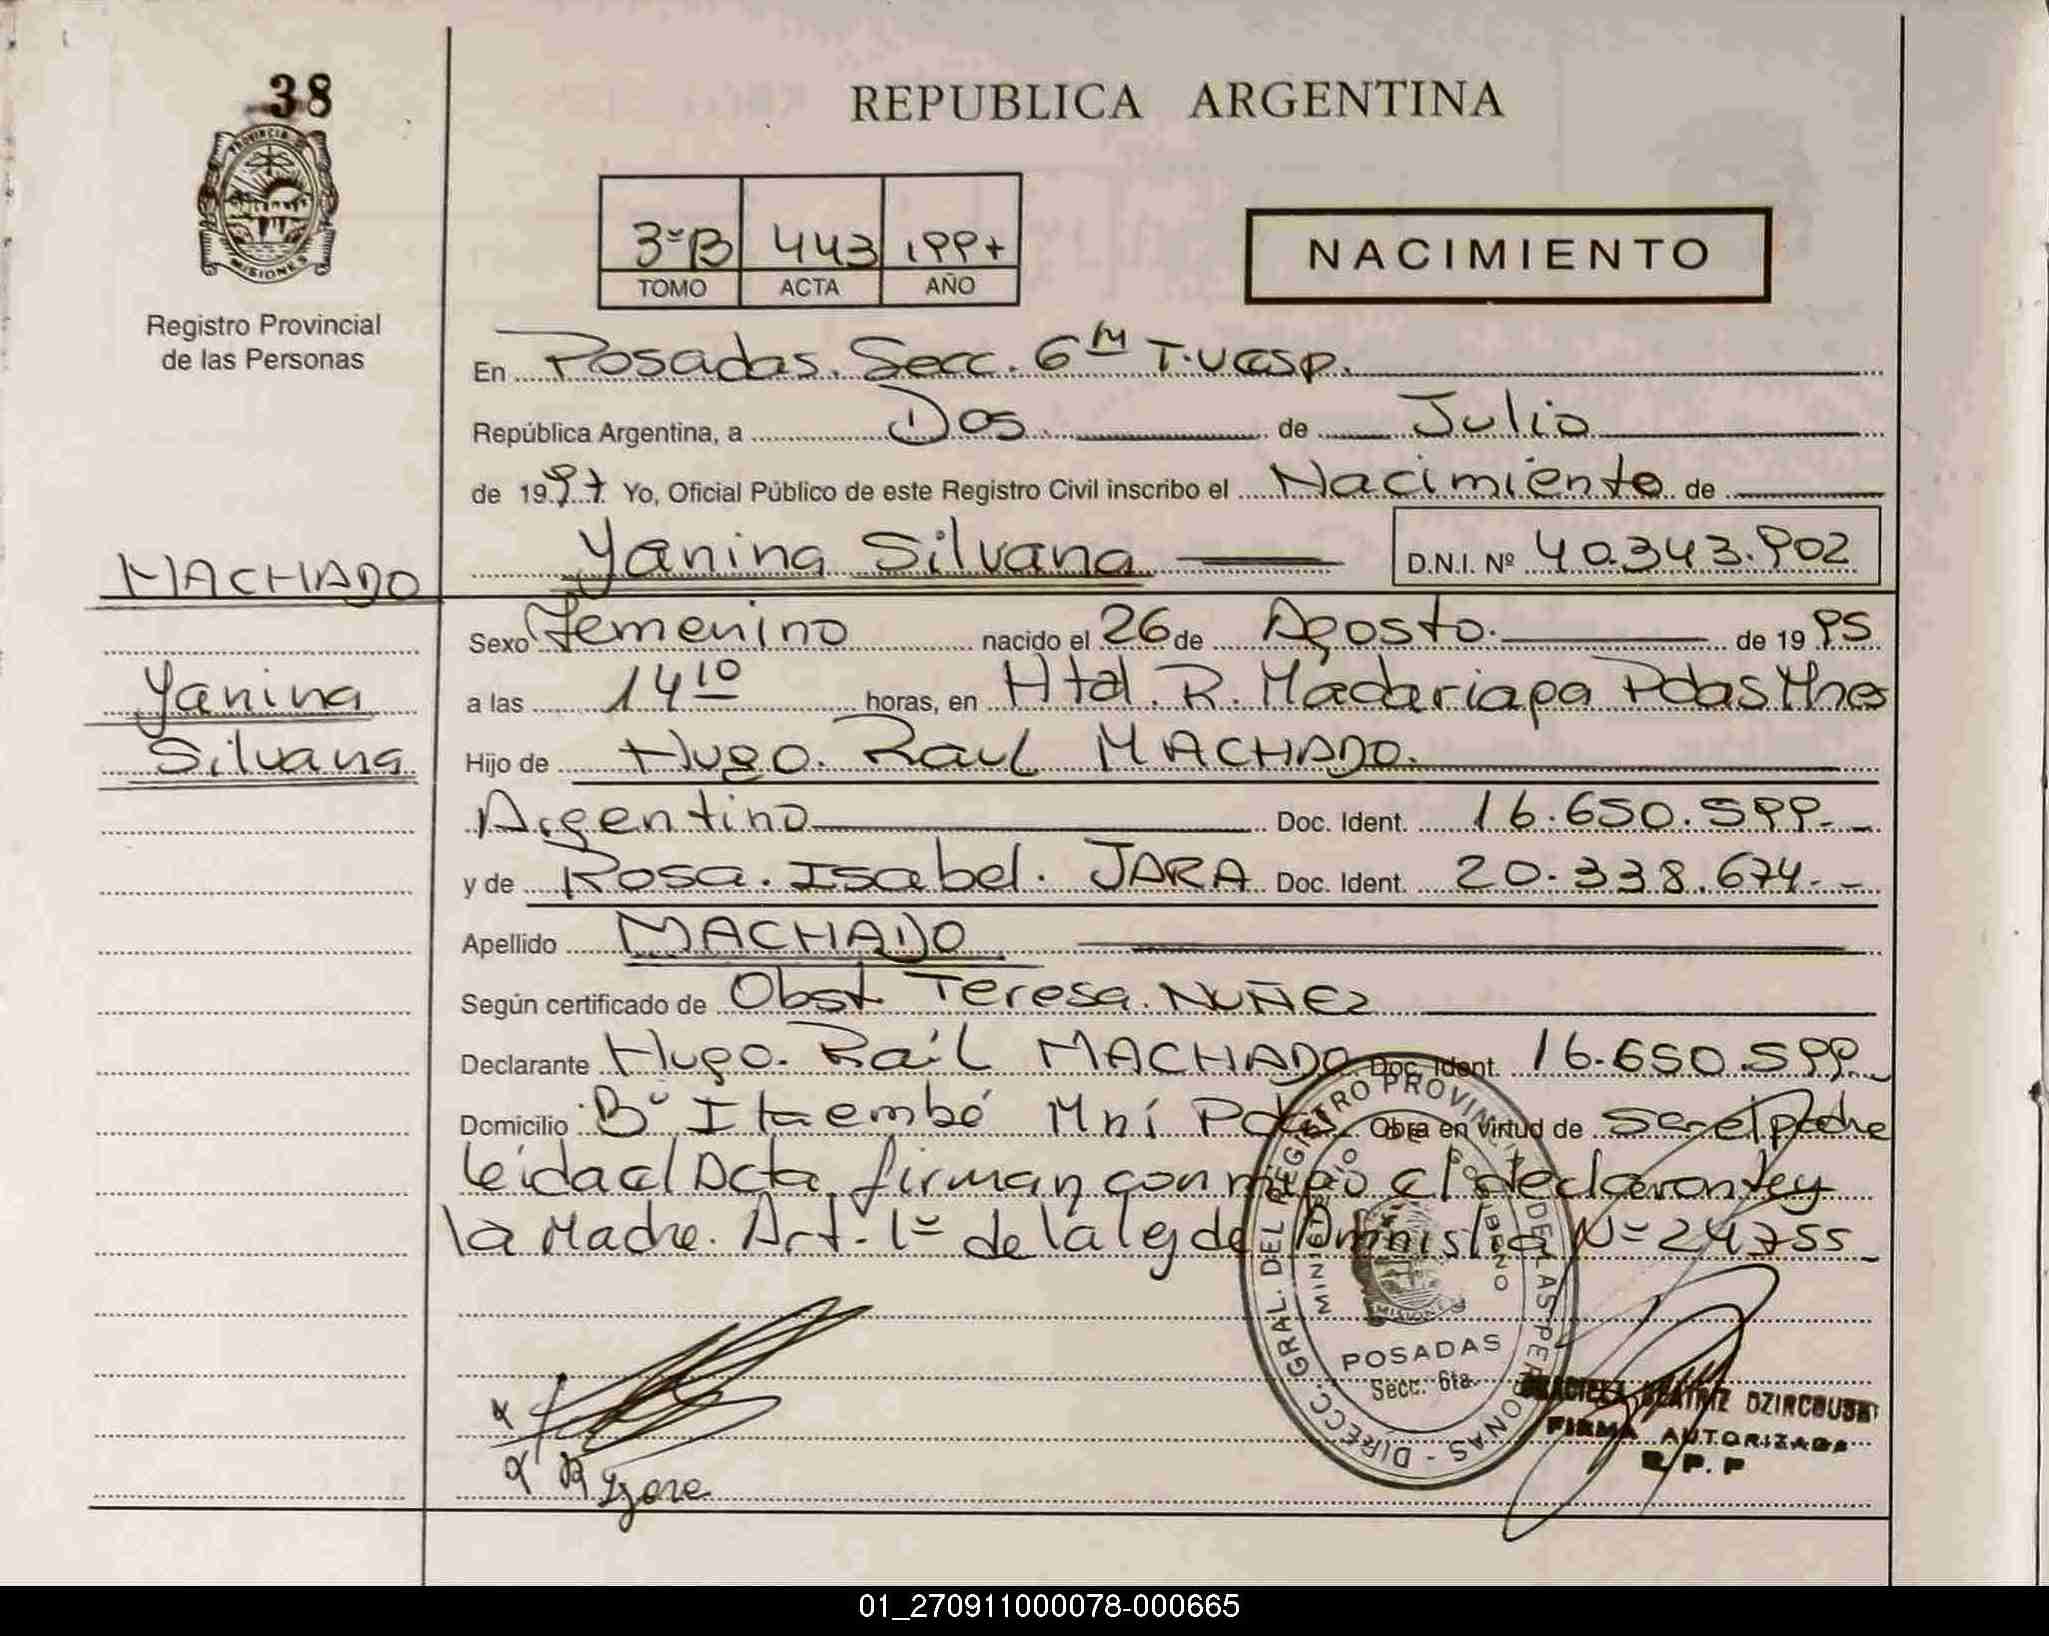 38
PROVINCIA DE
MISIONES
Registro Provincial
de las Personas
REPUBLICA ARGENTINA
3º B 443 1997
TOMO ACTA AÑO
NACIMIENTO
En Posadas. Secc. 6ta T. Vesp.
República Argentina, a Dos de Julio
de 1997 Yo, Oficial Público de este Registro Civil inscribo el Nacimiento de
Yanina Silvana D.N.I. Nº 40.343.902
MACHADO
Yanina
Silvana
Sexo Femenino nacido el 26 de Agosto. de 1995
a las 14 10 horas, en Htal. R. Madariaga Pdas Mnes
Hijo de Hugo. Raul MACHADO.
Argentino Doc. Ident. 16.650.599.-
y de Rosa. Isabel. JARA Doc. Ident. 20.338.674.-
Apellido MACHADO
Según certificado de Obst. Teresa. NUÑEZ
Declarante Hugo. Raúl MACHADO Doc. Ident. 16.650.599.-
Domicilio Bº Itaembé Mní Pdas Obra en virtud de ser el padre
leida el Acta, firman conmigo el declarante y
la Madre. Art. 1º de la ley de Amnistia Nº 24755
DIRECC. GRAL. DEL REGISTRO PROVINCIAL DE LAS PERSONAS -
MINISTERIO DE GOBIERNO
MISIONES
POSADAS
Secc. 6ta.
GRACIELA BEATRIZ
FIRMA AUTORIZADA
R.P.P
01_270911000078-000665